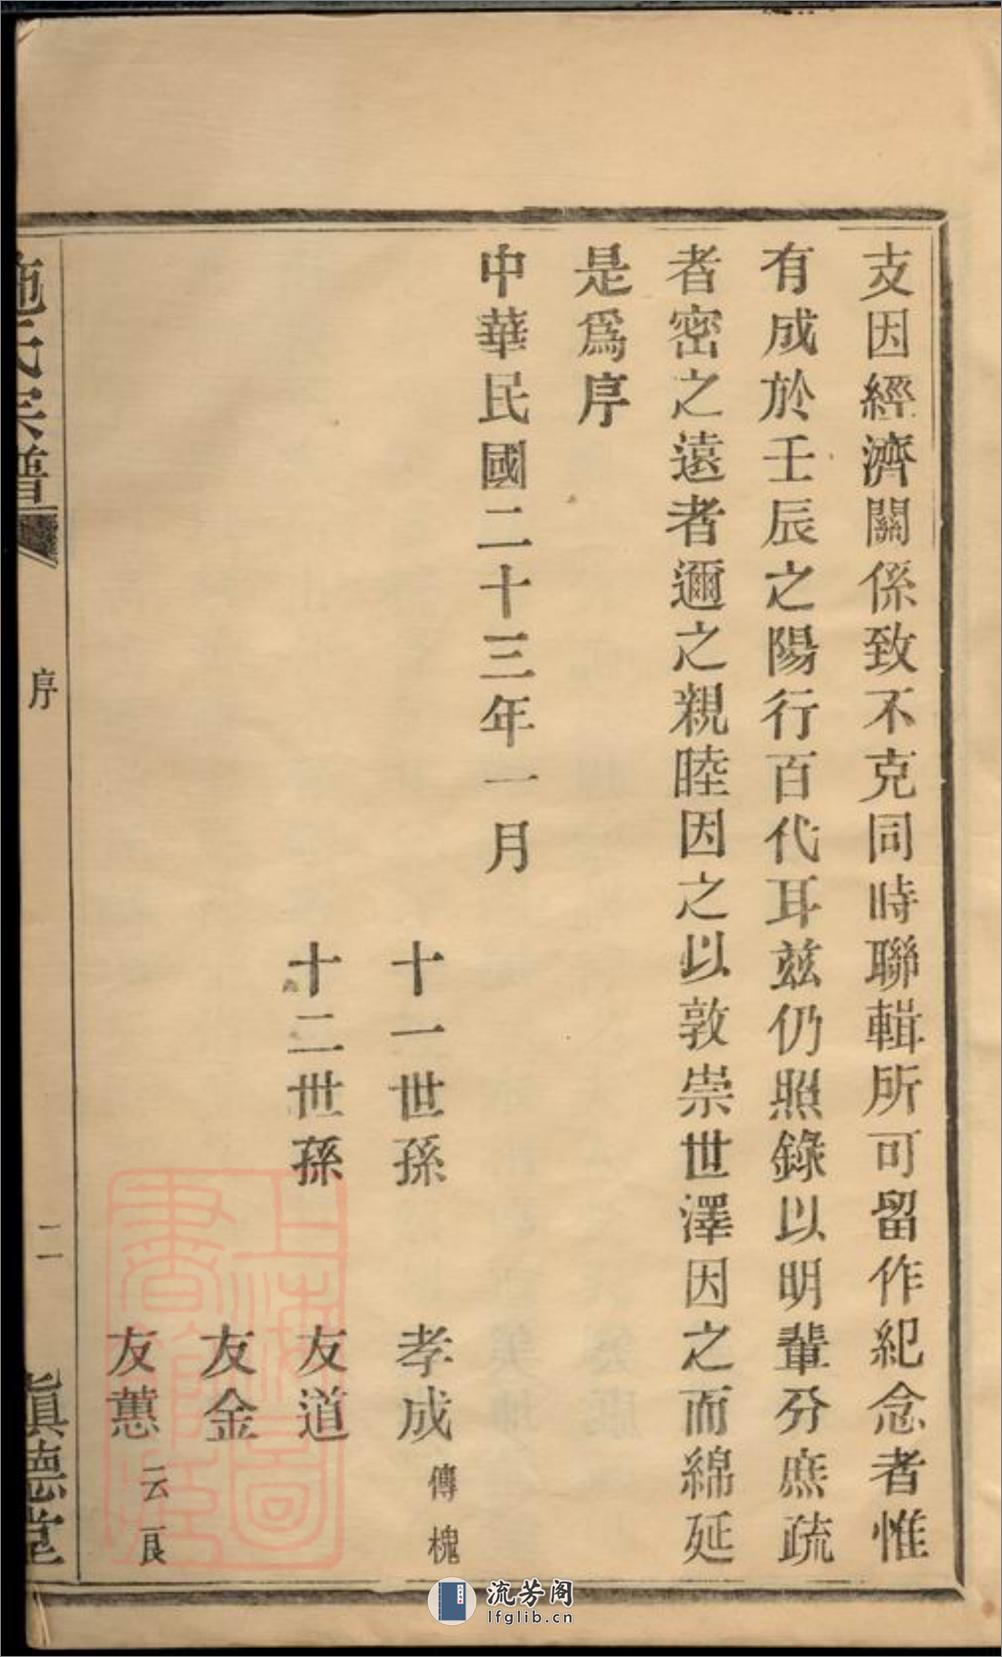 支因經濟關係致不克同時聯輯所可留作紀念者惟
有成於壬辰之陽行百代耳兹仍照錄以明輩分庶疏
者密之遠者邇之親睦因之以敦崇世澤因之而綿延
是爲序
中華民國二十三年一月
十一世孫 孝成 傳槐
十二世孫 友道
友金
友蕙 云良
施氏宗譜 序 二 眞德堂
上海圖書館藏
流芳阁
lfglib.cn